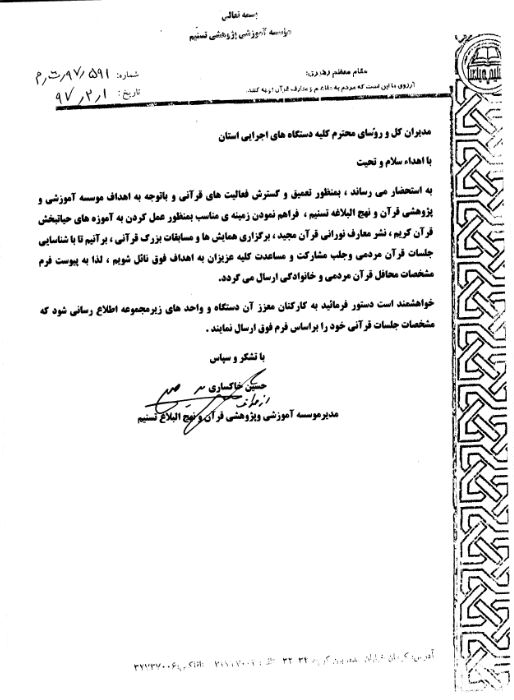 بسمه تعالی
مؤسسه آموزشی پژوهشی تسنیم
شماره: ۹۷٫۵۹۱
تاریخ: ۹۷٫۲٫۱
مقام معظم رهبری:
آرزوی ما این است که مردم به مفاهیم و معارف قرآن توجه کنند.
مدیران کل و روسای محترم کلیه دستگاه های اجرایی استان
با اهداء سلام و تحیت
به استحضار می رساند ، بمنظور تعمیق و گسترش فعالیت های قرآنی و باتوجه به اهداف موسسه آموزشی و
پژوهشی قرآن و نهج البلاغه تسنیم ، فراهم نمودن زمینه ی مناسب بمنظور عمل کردن به آموزه های حیاتبخش
قرآن کریم ، نشر معارف نورانی قرآن مجید ، برگزاری همایش ها و مسابقات بزرگ قرآنی ، برآنیم تا با شناسایی
جلسات قرآن مردمی وجلب مشارکت و مساعدت کلیه عزیزان به اهداف فوق نائل شویم ، لذا به پیوست فرم
مشخصات محافل قرآن مردمی و خانوادگی ارسال می گردد.
خواهشمند است دستور فرمائید به کارکنان معزز آن دستگاه و واحد های زیرمجموعه اطلاع رسانی شود که
مشخصات جلسات قرآنی خود را براساس فرم فوق ارسال نمایند .
با تشکر و سپاس
حسین خاکساری
مدیرموسسه آموزشی وپژوهشی قرآن و نهج البلاغ تسنیم
آدرس: کرمان خیابان ۳۲۲۳۷۰۰۶